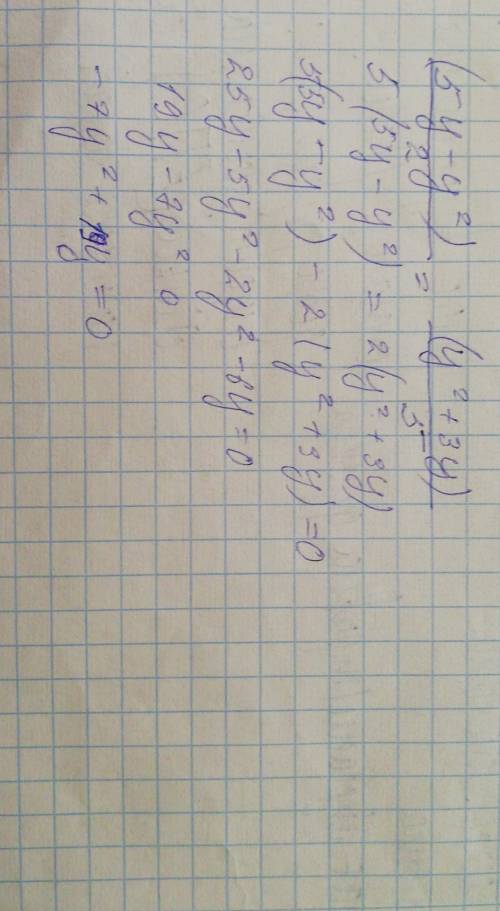 (5y - y²)/2 = (y² + 3y)/5
5(5y - y²) = 2(y² + 3y)
5(5y - y²) - 2(y² + 3y) = 0
25y - 5y² - 2y² - 6y = 0
19y - 7y² = 0
-7y² + 19y = 0